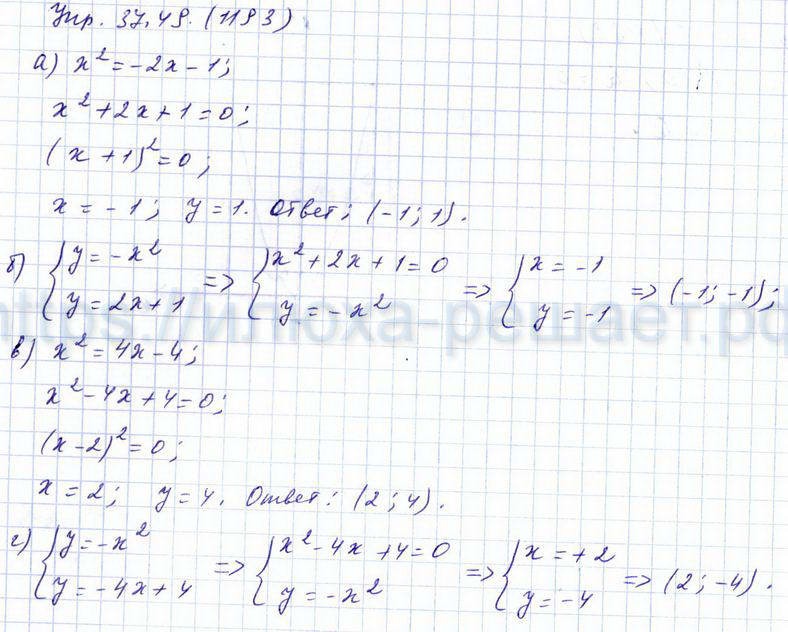 Упр. 37.49. (1193)
а) x² = -2x - 1;
x² + 2x + 1 = 0;
(x + 1)² = 0;
x = -1; y = 1. Ответ: (-1; 1).
б) { y = -x² y = 2x + 1 => { x² + 2x + 1 = 0 y = -x² => { x = -1 y = -1 => (-1; -1);
https://илюха-решает.рф
в) x² = 4x - 4;
x² - 4x + 4 = 0;
(x - 2)² = 0;
x = 2; y = 4. Ответ: (2; 4).
г) { y = -x² y = -4x + 4 => { x² - 4x + 4 = 0 y = -x² => { x = +2 y = -4 => (2; -4).